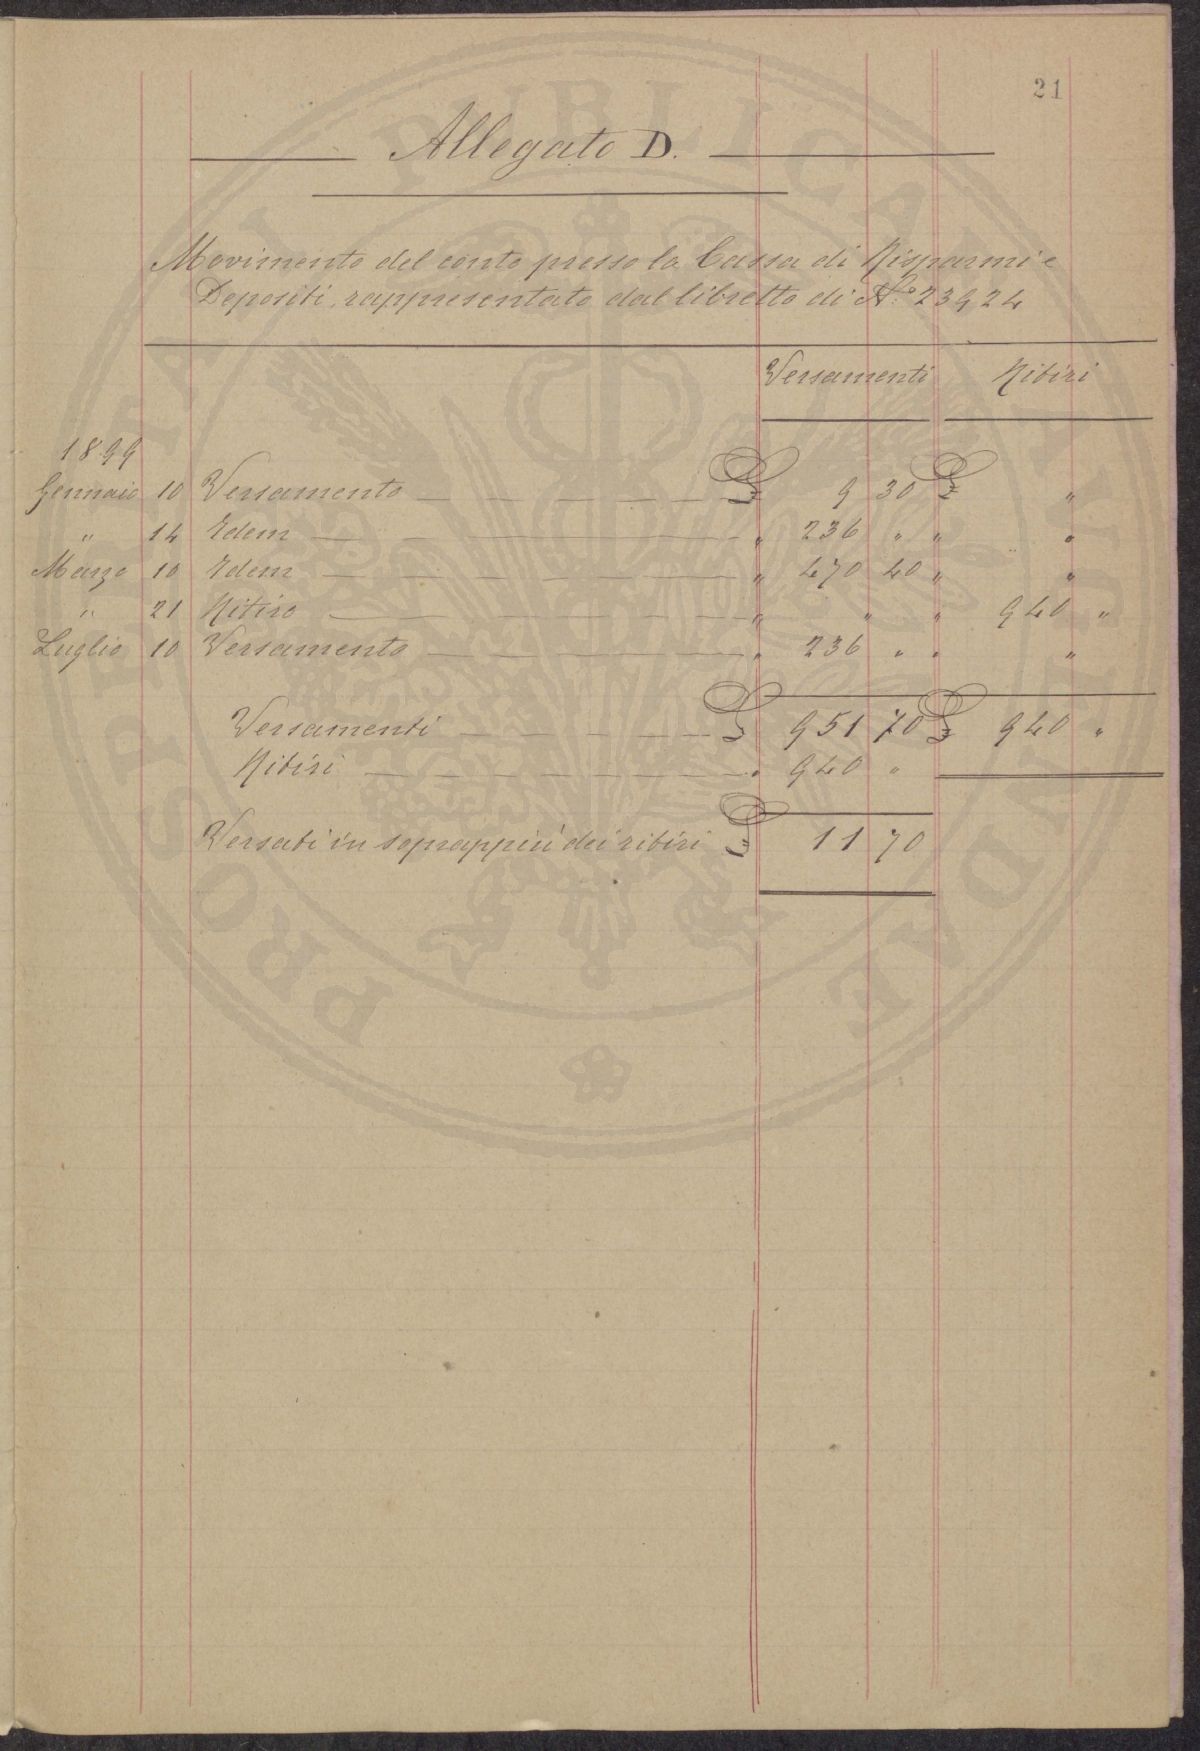 21
Allegato D.
Movimento del conto presso la Cassa di Risparmi e
Depositi, rappresentato dal libretto di No. 23924
Versamenti Ritiri
1899
Gennaio 10 Versamento £ 9 30 £ "
" 14 Idem " 236 " " "
Marzo 10 Idem " 470 40 " "
" 21 Ritiro " " " 940 "
Luglio 10 Versamento " 236 " " "
Versamenti £ 951 70 £ 940 "
Ritiri " 940 "
Versati in soprappiù dei ritiri £ 11 70
PROSPERITAS PUBLICA AVGVM DALE